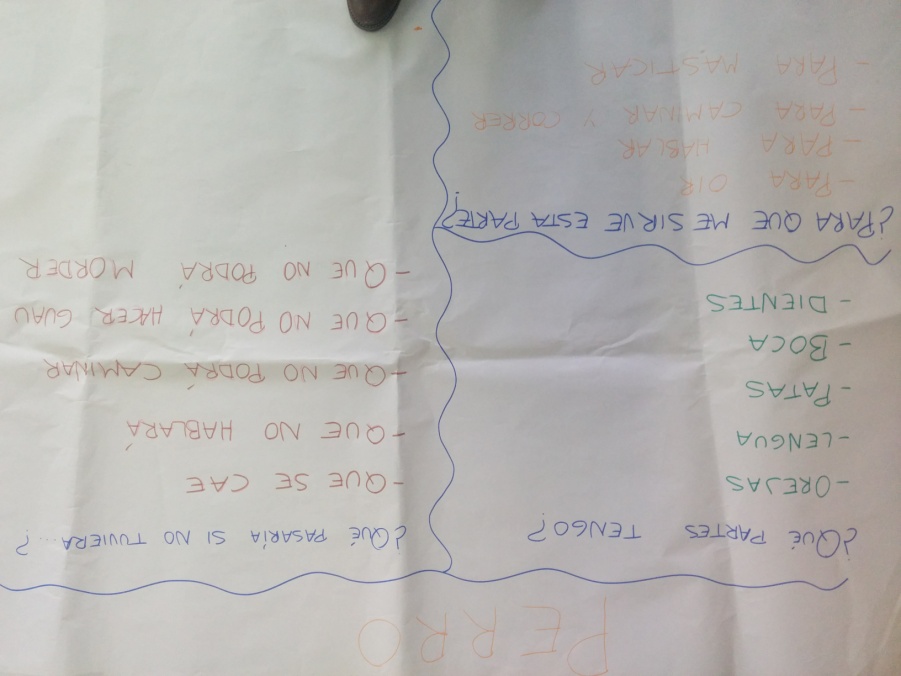 PERRO
¿QUÉ PARTES TENGO?
-OREJAS
-LENGUA
-PATAS
-BOCA
-DIENTES
¿PARA QUE ME SIRVE ESTA PARTE?
-PARA OIR
-PARA HABLAR
-PARA CAMINAR Y CORRER
-PARA MASTICAR
¿QUÉ PASARÍA SI NO TUVIERA....?
-QUE SE CAE
-QUE NO HABLARÁ
-QUE NO PODRÁ CAMINAR
-QUE NO PODRÁ HACER GUAU
-QUE NO PODRÁ MORDER